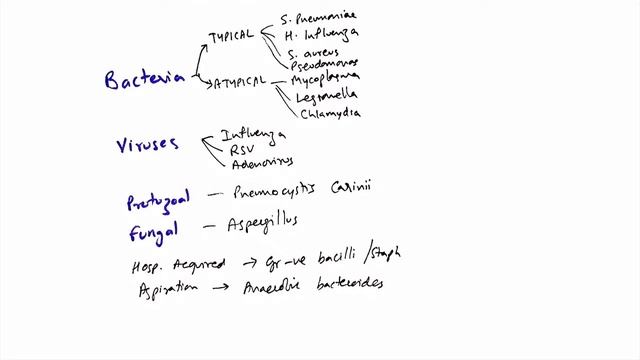 Bacteria
TYPICAL
S. Pneumoniae
H. Influenza
S. aureus
Pseudomonas
ATYPICAL — Mycoplasma
Legionella
Chlamydia
Viruses
Influenza
RSV
Adenovirus
Protozoal — Pneumocystis Carinii
Fungal — Aspergillus
Hosp. Acquired → Gr -ve bacilli / Staph
Aspiration → Anaerobic bacteroides